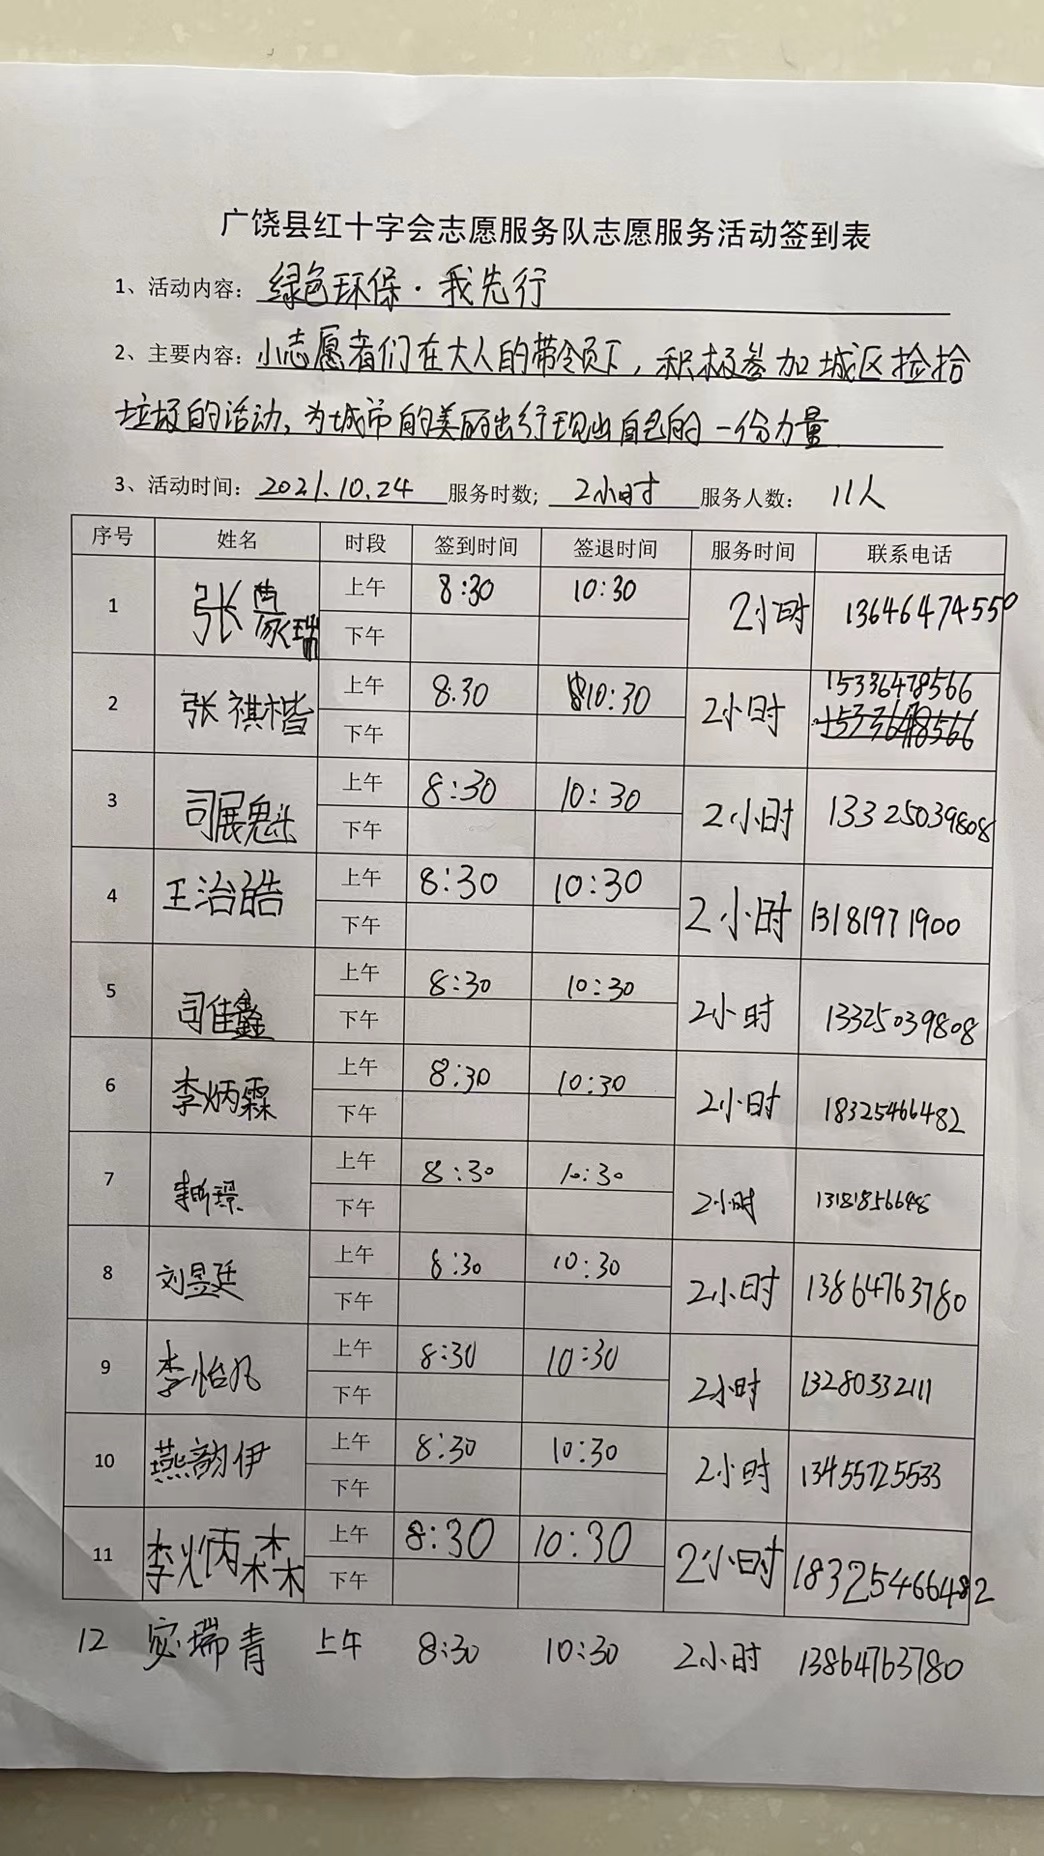 广饶县红十字会志愿服务队志愿服务活动签到表
1、活动内容：绿色环保·我先行
2、主要内容：小志愿者们在大人的带领下，积极参加城区捡拾
垃圾的活动，为城市的美丽出行现出自己的一份力量
3、活动时间：2021.10.24 服务时数；2小时 服务人数：11人
序号 姓名 时段 签到时间 签退时间 服务时间 联系电话
1 张 瑞 上午 8:30 10:30 2小时 13646474550
下午
2 张祺楷 上午 8:30 10:30 2小时 15336478566
下午
3 司展魁 上午 8:30 10:30 2小时 13325039808
下午
4 王治皓 上午 8:30 10:30 2小时 13181971900
下午
5 司佳鑫 上午 8:30 10:30 2小时 13325039808
下午
6 李炳霖 上午 8:30 10:30 2小时 18325466482
下午
7 上午 8:30 10:30 2小时
下午
8 刘昱廷 上午 8:30 10:30 2小时 13864763780
下午
9 李怡凡 上午 8:30 10:30 2小时 13280332111
下午
10 燕韵伊 上午 8:30 10:30 2小时 13455725533
下午
11 李炳森 上午 8:30 10:30 2小时 18325466482
下午
12 瑞青 上午 8:30 10:30 2小时 13864763780